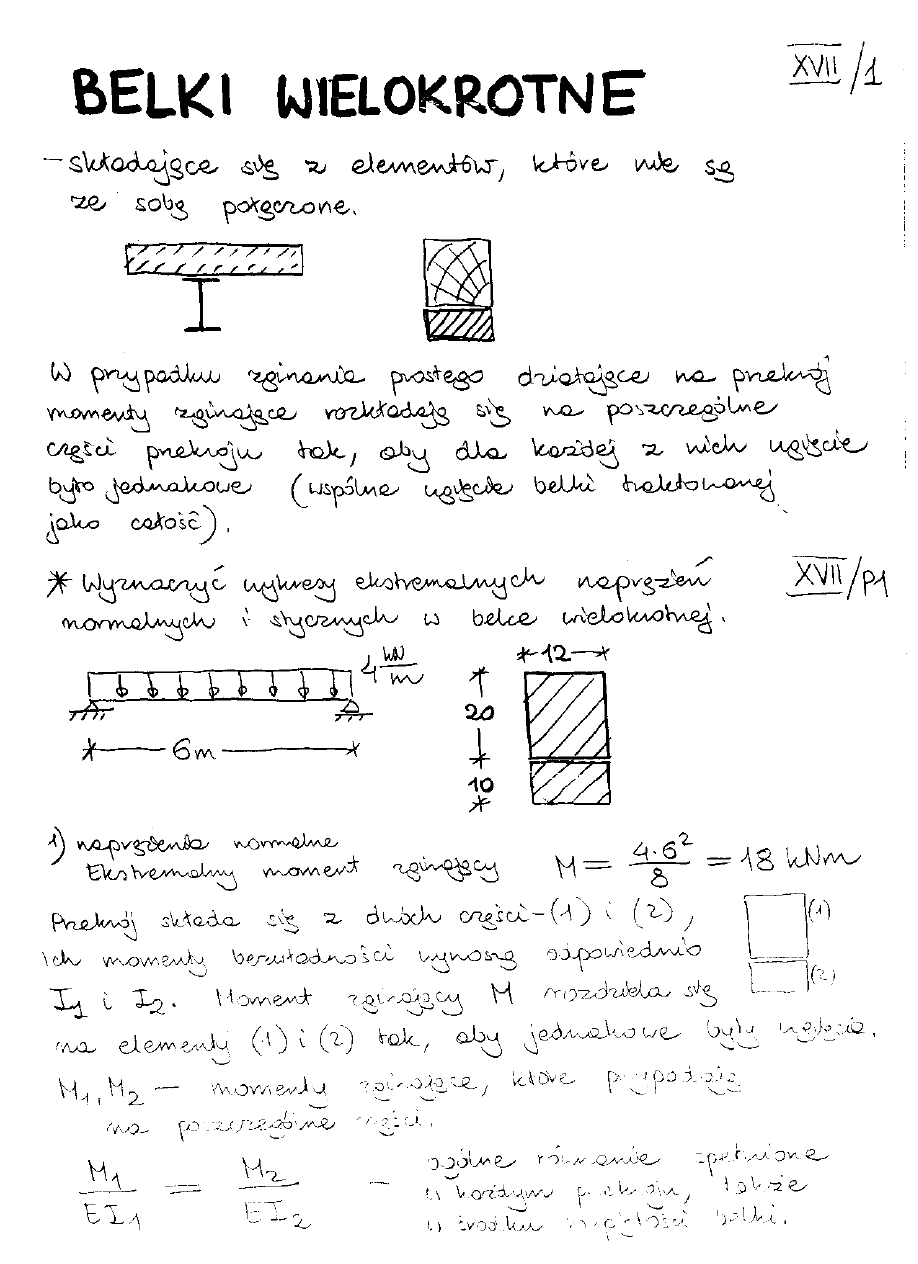 XVII/1
BELKI WIELOKROTNE
- składające się z elementów, które nie są
ze sobą połączone.
W przypadku zginania prostego działające na przekrój
momenty zginające rozkładają się na poszczególne
części przekroju tak, aby dla każdej z nich ugięcie
było jednakowe (wspólne ugięcie belki traktowanej
jako całość).
* Wyznaczyć wykresy ekstremalnych naprężeń
XVII/P1
normalnych i stycznych w belce wielokrotnej.
4 kN/m
12
20
6m
10
1) naprężenia normalne
Ekstremalny moment zginający M = 4·6²/8 = 18 kNm
Przekrój składa się z dwóch części - (1) i (2),
(1)
ich momenty bezwładności wynoszą odpowiednio
(2)
I1 i I2. Moment zginający M rozdziela się
na elementy (1) i (2) tak, aby jednakowe były ugięcia.
M1, M2 — momenty zginające, które przypadają
na poszczególne części.
M1/EI1 = M2/EI2 - ogólne równanie spełnione
w każdym przekroju, także
w środku rozpiętości belki.